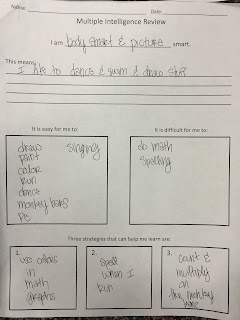 Name: Date:
Multiple Intelligence Review
I am body smart & picture smart.
This means I like to dance & swim & draw stuff
It is easy for me to:
draw singing
paint
color
run
dance
monkey bars
PE
It is difficult for me to:
do math
spelling
Three strategies that can help me learn are:
1.
use colors
in
math
graphs
2.
spell
when I
run
3.
count &
multiply
on
the monkey
bars